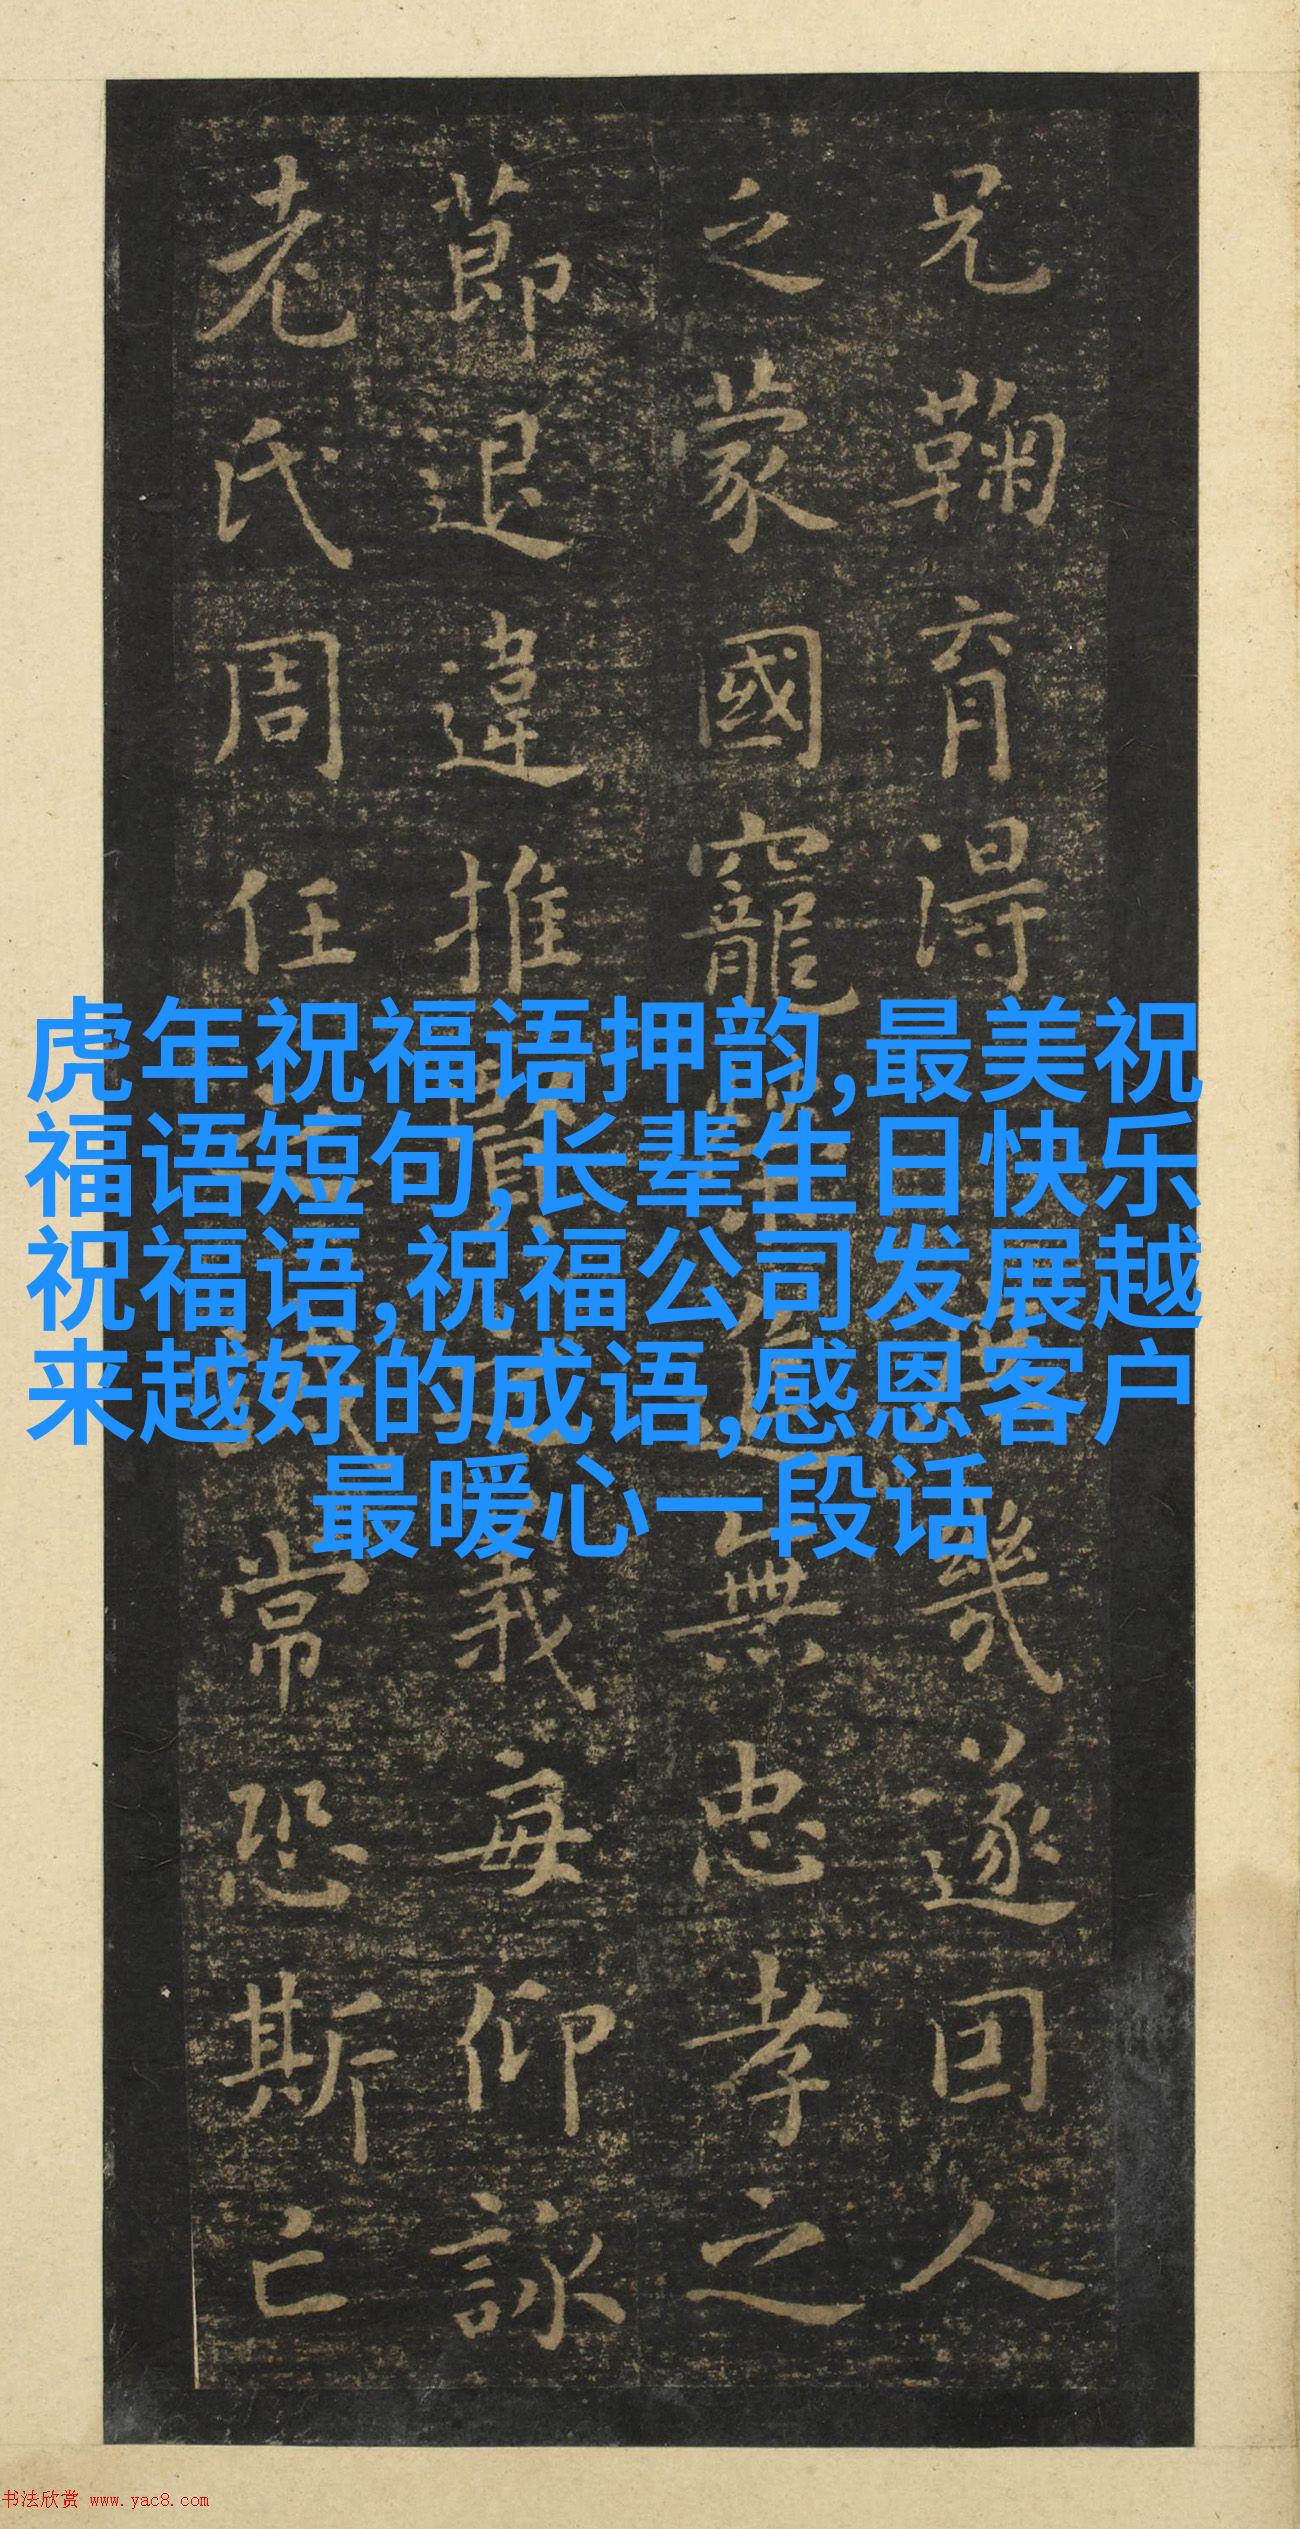 兄鞠育得幾遂囙人
之蒙國寵進無忠孝之
莭退違推賢義每仰詠
老氏周任常恐斯亡
虎年祝福语押韵,最美祝
福语短句,长辈生日快乐
祝福语,祝福公司发展越
来越好的成语,感恩客户
最暖心一段话
书法欣赏 www.yac8.com